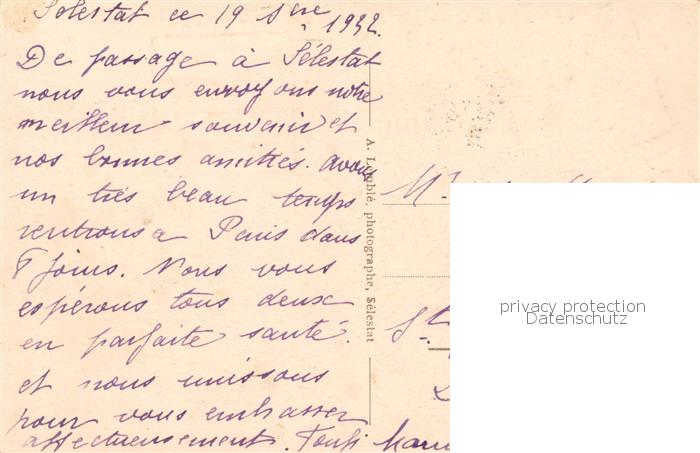 Sélestat ce 19 1932.
De passage à Sélestat
nous vous envoyons notre
meilleur souvenir et
nos bonnes amitiés. avons
un très beau temps
rentrons a Paris dans
8 jours. Nous vous
espérons tous deux
en parfaite santé.
et nous unissons
pour vous embrasser
affectueusement.
A. Lemblé, photographe, Sélestat
M.
St
privacy protection
Datenschutz